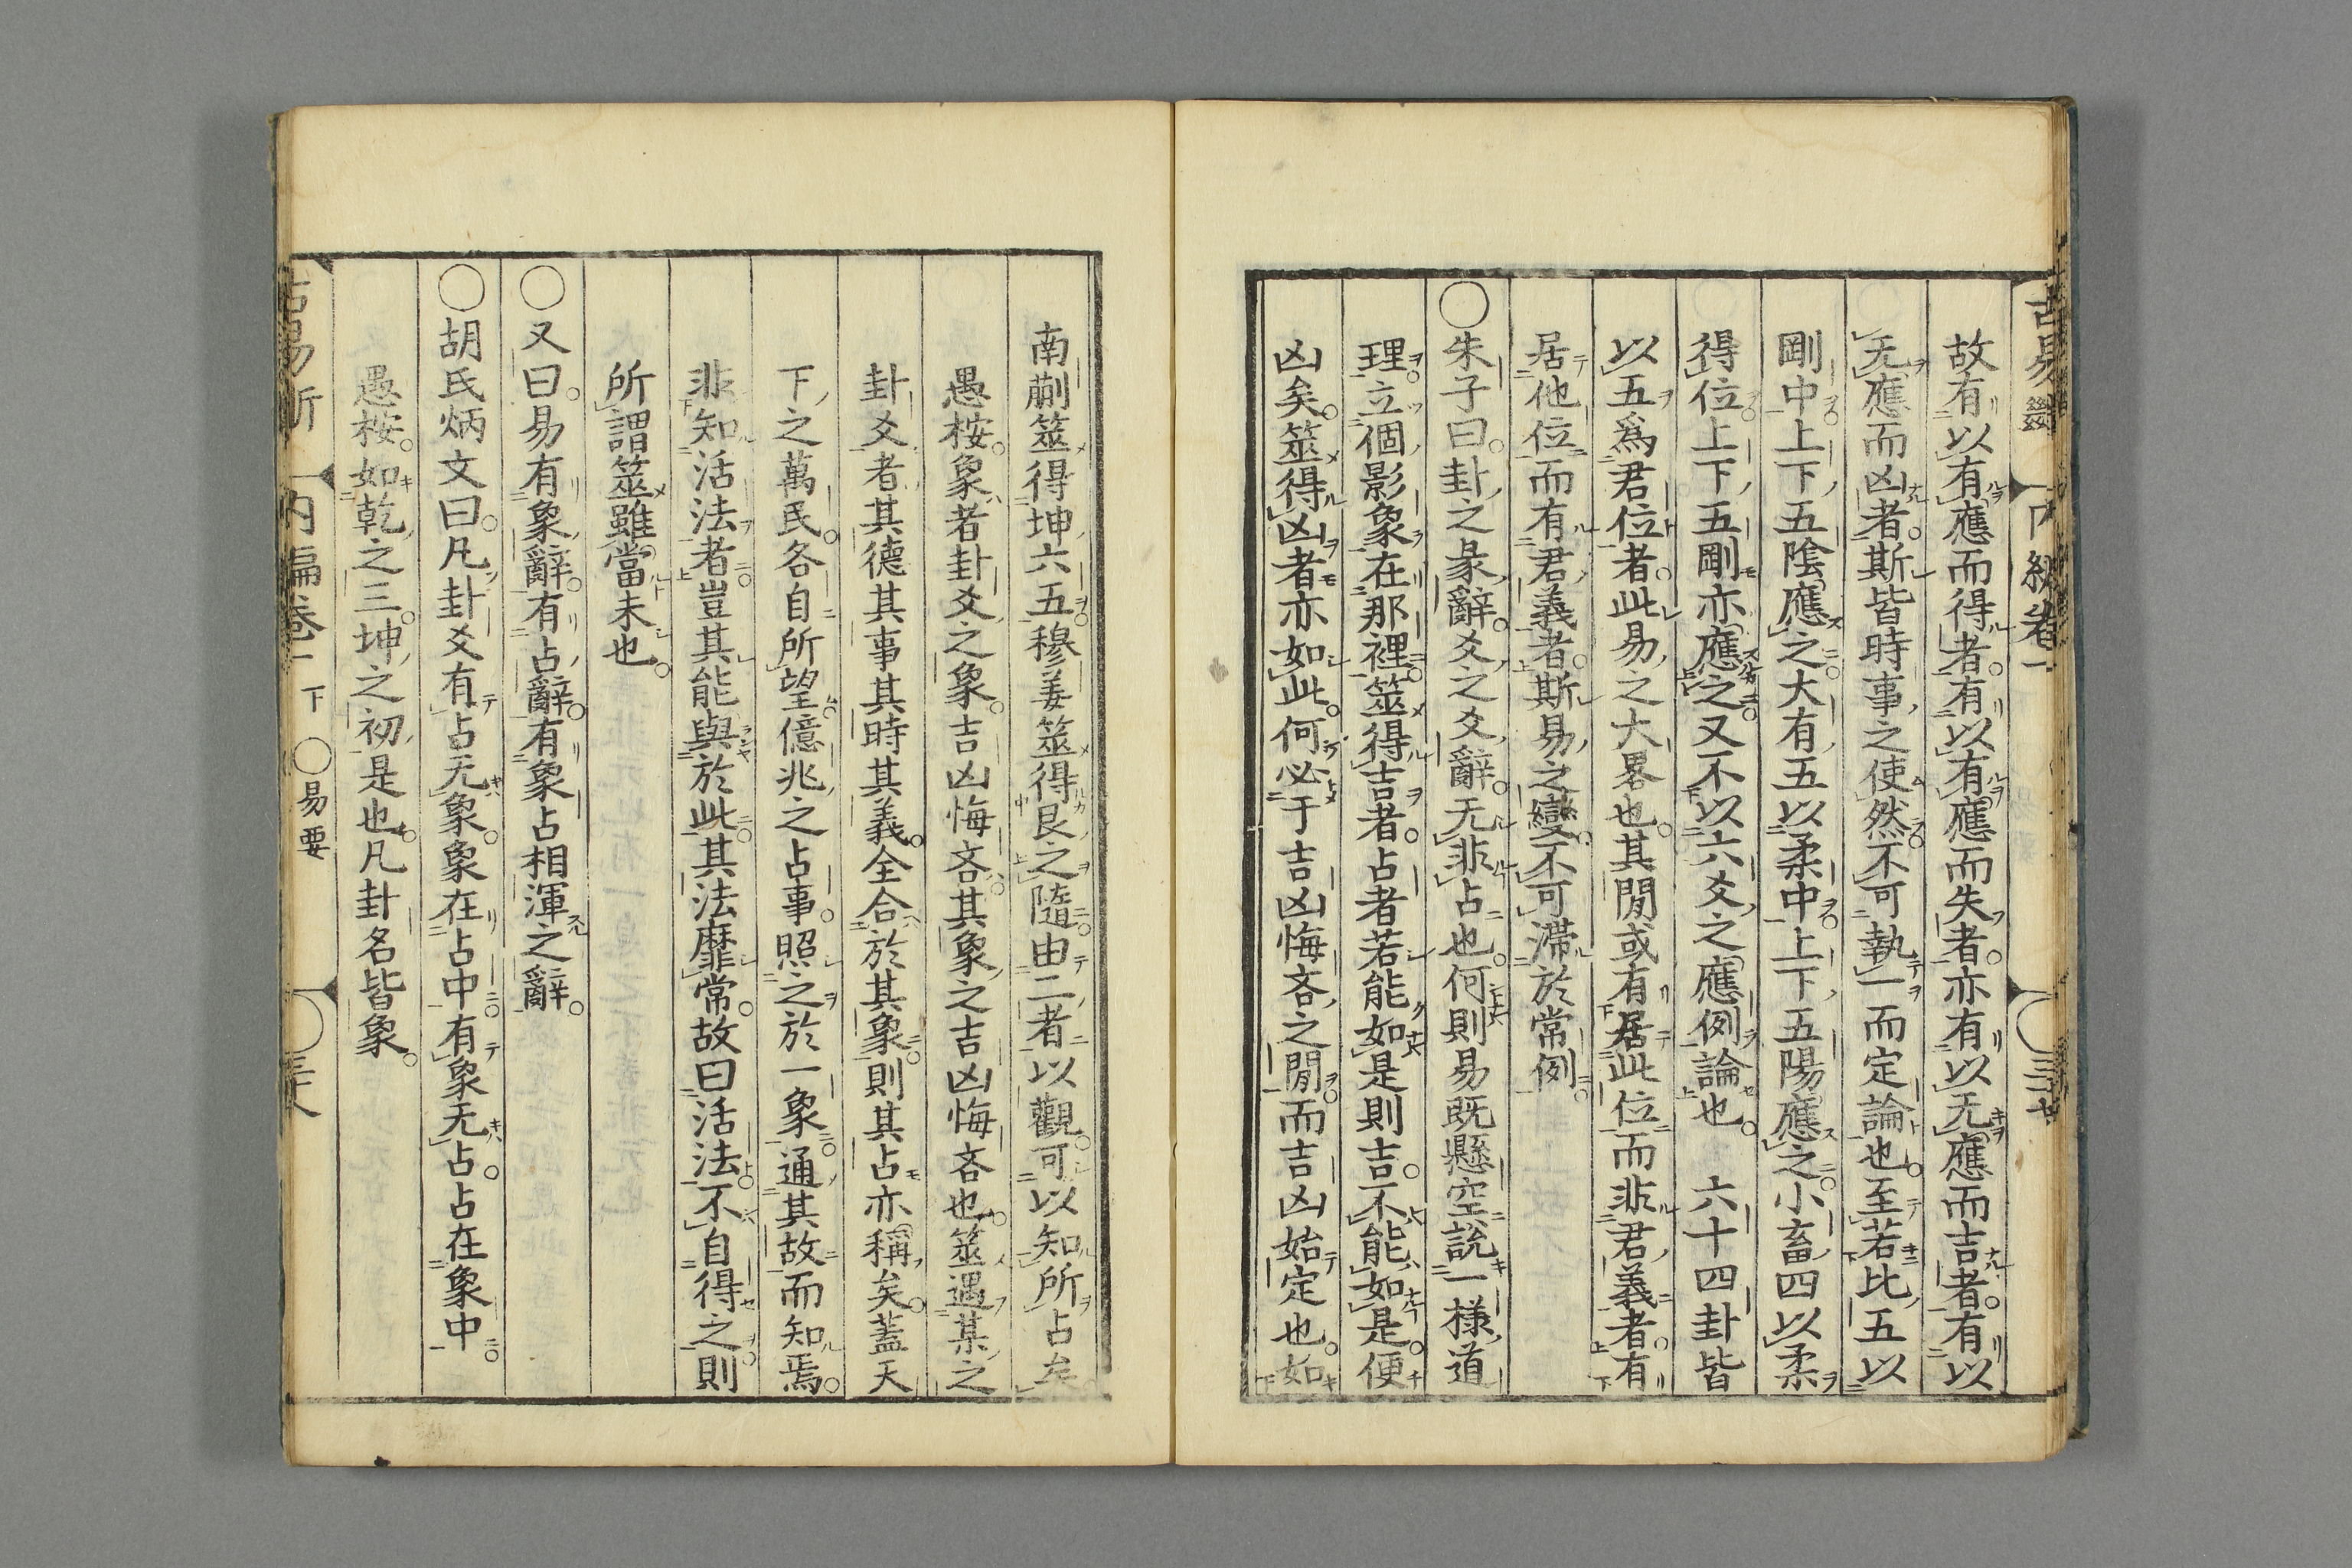 故有以有應而得者有以有應而失者亦有以无應而吉者有以
无應而凶者斯皆時事之使然不可執一而定論也至若比五以
剛中上下五陰應之大有五以柔中上下五陽應之小畜四以柔
得位上下五剛亦應之又不以六爻之應例論也 六十四卦皆
以五爲君位者此易之大畧也其閒或有居此位而非君義者有
居他位而有君義者斯易之變不可滯於常例
○朱子曰卦之彖辭爻之爻辭无非占也何則易既懸空說一樣道
理立個影象在那裡筮得吉者占者若能如是則吉不能如是便
凶矣筮得凶者亦如此何必于吉凶悔吝之閒而吉凶始定也如
南蒯筮得坤六五穆姜筮得艮之隨由二者以觀可以知所占矣
愚桉象者卦爻之象吉凶悔吝其象之吉凶悔吝也筮遇某之
卦爻者其德其事其時其義全合於其象則其占亦稱矣蓋天
下之萬民各自所望億兆之占事照之於一象通其故而知焉
非知活法者豈其能與於此其法靡常故曰活法不自得之則
所謂筮雖當未也
○又曰易有象辭有占辭有象占相渾之辭
○胡氏炳文曰凡卦爻有占无象象在占中有象无占占在象中
愚桉如乾之三坤之初是也凡卦名皆象
古易斷 内編卷一 下 ○易要